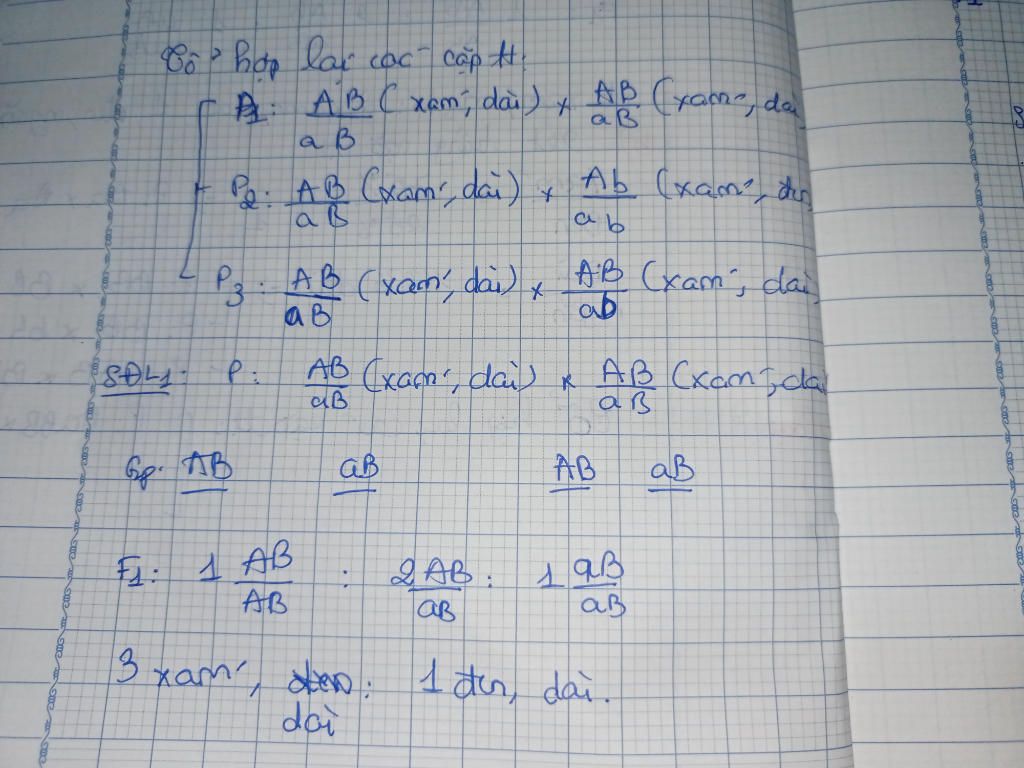 Tổ hợp lại các cặp tt.
P1: AB/aB (xám, dài) x AB/aB (xám, dài
P2: AB/aB (xám, dài) x Ab/ab (xám,
P3: AB/aB (xám, dài) x AB/ab (xám, dài
SĐL1: P: AB/aB (xám, dài) x AB/aB (xám, dài
Gp: AB aB AB aB
F1: 1 AB/AB : 2 AB/aB : 1 aB/aB
3 xám, : 1 đen, dài.
dài